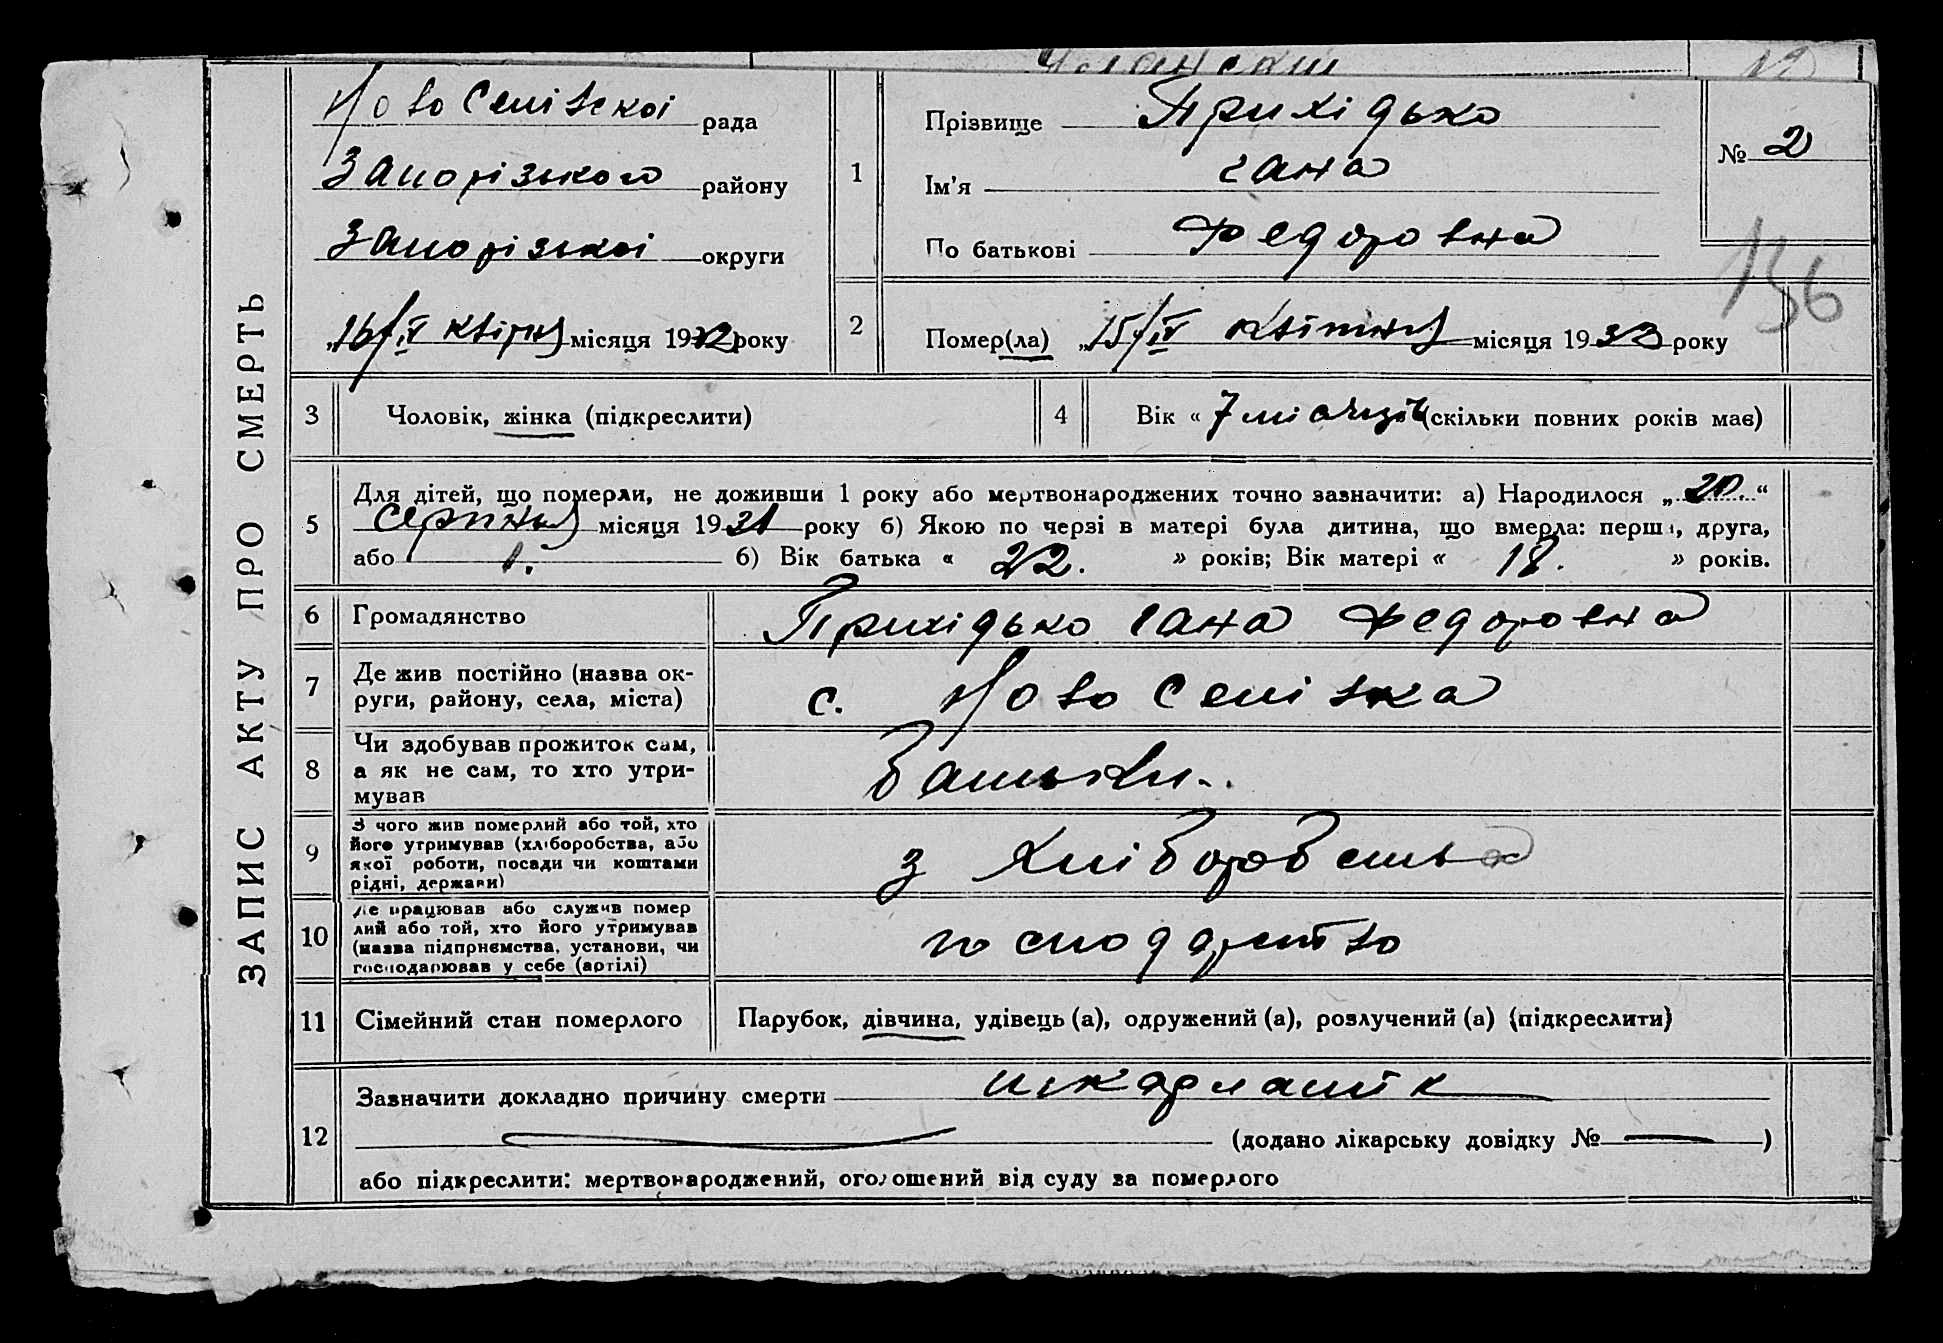 ЗАПИС АКТУ ПРО СМЕРТЬ
Ново Селівскої рада
Запорізького району
Запорізької округи
„16/IV квітня місяця 1932 року
1
Прізвище Прихідько
Ім'я Гана
По батькові Федоровна
№ 2
156
2
Помер(ла) „15/IV квітня місяця 1933 року
3 Чоловік, жінка (підкреслити)
4 Вік « 7 місяців (скільки повних років має)
5 Для дітей, що померли, не доживши 1 року або мертвонароджених точно зазначити: а) Народилося „ 20 “
серпня місяця 1931 року б) Якою по черзі в матері була дитина, що вмерла: перша, друга,
або 1. б) Вік батька « 22. » років; Вік матері « 18. » років.
6 Громадянство Прихідько Гана Федоровна
7 Де жив постійно (назва ок-
руги, району, села, міста) с. Ново Селівка
8 Чи здобував прожиток сам,
а як не сам, то хто утри-
мував батьки.
9 З чого жив померлий або той, хто
його утримував (хліборобства, або
якої роботи, посади чи коштами
рідні, держави) з хліборобства
10 Де працював або служив помер
лий або той, хто його утримував
(назва підприємства, установи, чи
господарював у себе (артілі) господарство
11 Сімейний стан померлого Парубок, дівчина, удівець (а), одружений (а), розлучений (а) (підкреслити)
12 Зазначити докладно причину смерти шкарлатік
(додано лікарську довідку № — )
або підкреслити: мертвонароджений, оголошений від суду за померлого